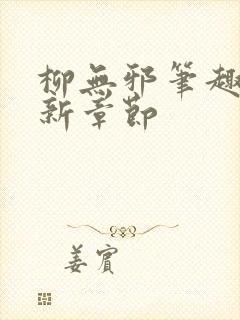 柳無邪筆趣
新章節
姜賓